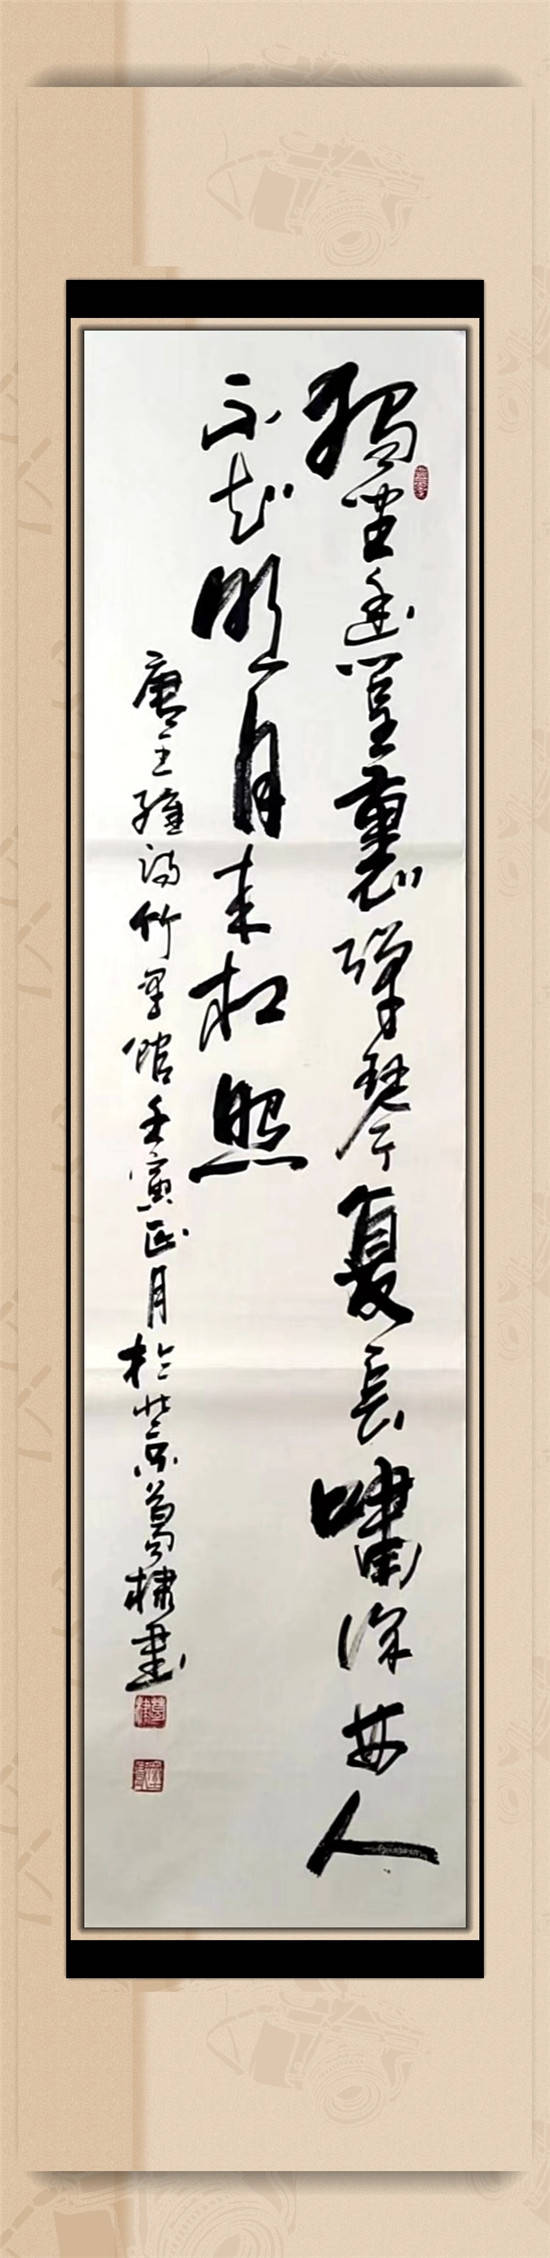 獨坐幽篁裏彈琴复長嘯深林人
不知明月来相照
唐王維詩竹里館壬寅正月於北京葛棣書